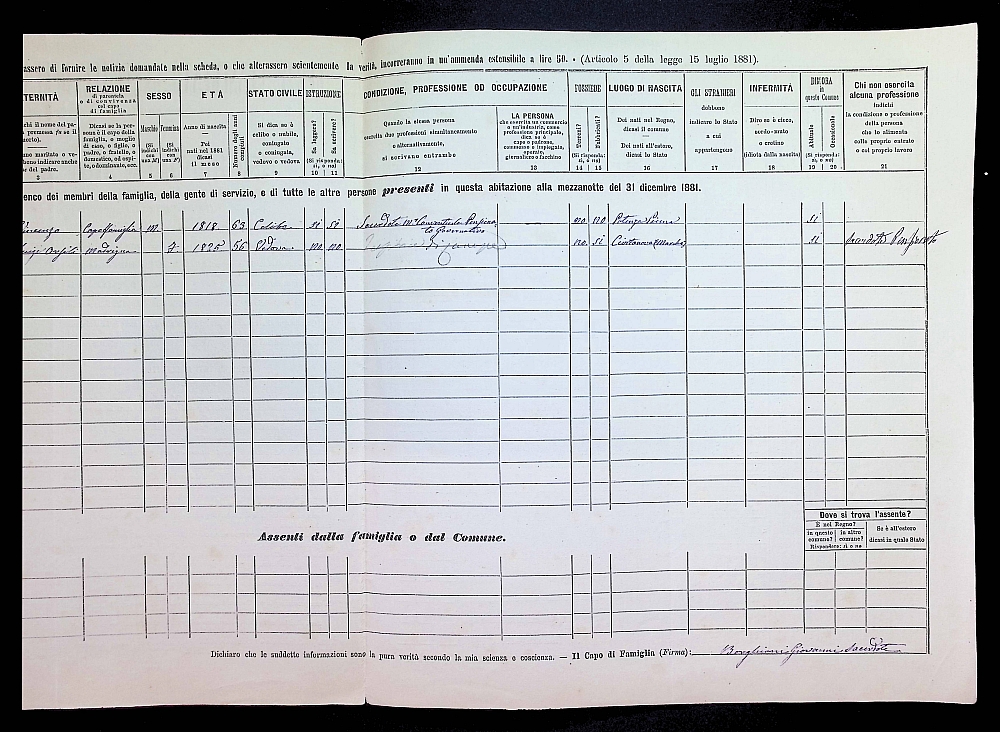 assero di fornire le notizie domandate nella scheda, o che alterassero scientemente la verità, incorreranno in un'ammenda estensibile a lire 50. - (Articolo 5 della legge 15 luglio 1881).
TERNITÀ
RELAZIONE
di parentela
o di convivenza
col capo
di famiglia
SESSO
ETÀ
STATO CIVILE
ISTRUZIONE
CONDIZIONE, PROFESSIONE OD OCCUPAZIONE
POSSIEDE
LUOGO DI NASCITA
GLI STRANIERI
debbono
indicare lo Stato
a cui
appartengono
INFERMITÀ
DIMORA
in
questo Comune
Chi non esercita
alcuna professione
indichi
la condizione o professione
della persona
che lo alimenta
collo proprie entrate
o col proprio lavoro
Dicasi se la per-
sona è il capo della
famiglia, o moglie
di esso, o figlio, o
padre, o fratello, o
domestico, od ospi-
te, o dominante, ecc.
Maschio
(Si
indichi
con
una M)
Femmina
(Si
indichi
con
una F)
Anno di nascita
Pei
nati nel 1881
dicasi
il mese
Numero degli anni
compiuti
Si dica se è
celibe o nubile,
coniugato
o coniugata,
vedovo o vedova
Sa leggere?
Sa scrivere?
(Si risponda:
sì, o no)
Quando la stessa persona
esercita due professioni simultaneamente
o alternativamente,
si scrivano entrambe
LA PERSONA
che esercita un commercio
o un'industria, come
professione principale,
dica se è
capo o padrone,
commesso o impiegato,
operaio,
giornaliero o facchino
Terreni?
Fabbricati?
(Si risponda:
sì, o no)
Dei nati nel Regno,
dicasi il comune
Dei nati all'estero,
dicasi lo Stato
Dire se è cieco,
sordo-muto
o cretino
(idiota dalla nascita)
Abituale
Occasionale
(Si risponda:
sì, o no)
3 4 5 6 7 8 9 10 11 12 13 14 15 16 17 18 19 20 21
enco dei membri della famiglia, della gente di servizio, e di tutte le altre persone presenti in questa abitazione alla mezzanotte del 31 dicembre 1881.
Capofamiglia M. 1818 63 Celibe si si no no si
7 1825 56 Vedova no no no si si
Assenti dalla famiglia o dal Comune.
Dove si trova l'assente?
È nel Regno?
in questo
comune?
in altro
comune?
Rispondere: sì o no
Se è all'estero
dicasi in quale Stato
Dichiaro che le suddette informazioni sono la pura verità secondo la mia scienza e coscienza. — Il Capo di Famiglia (Firma): Giovanni Sacerdote